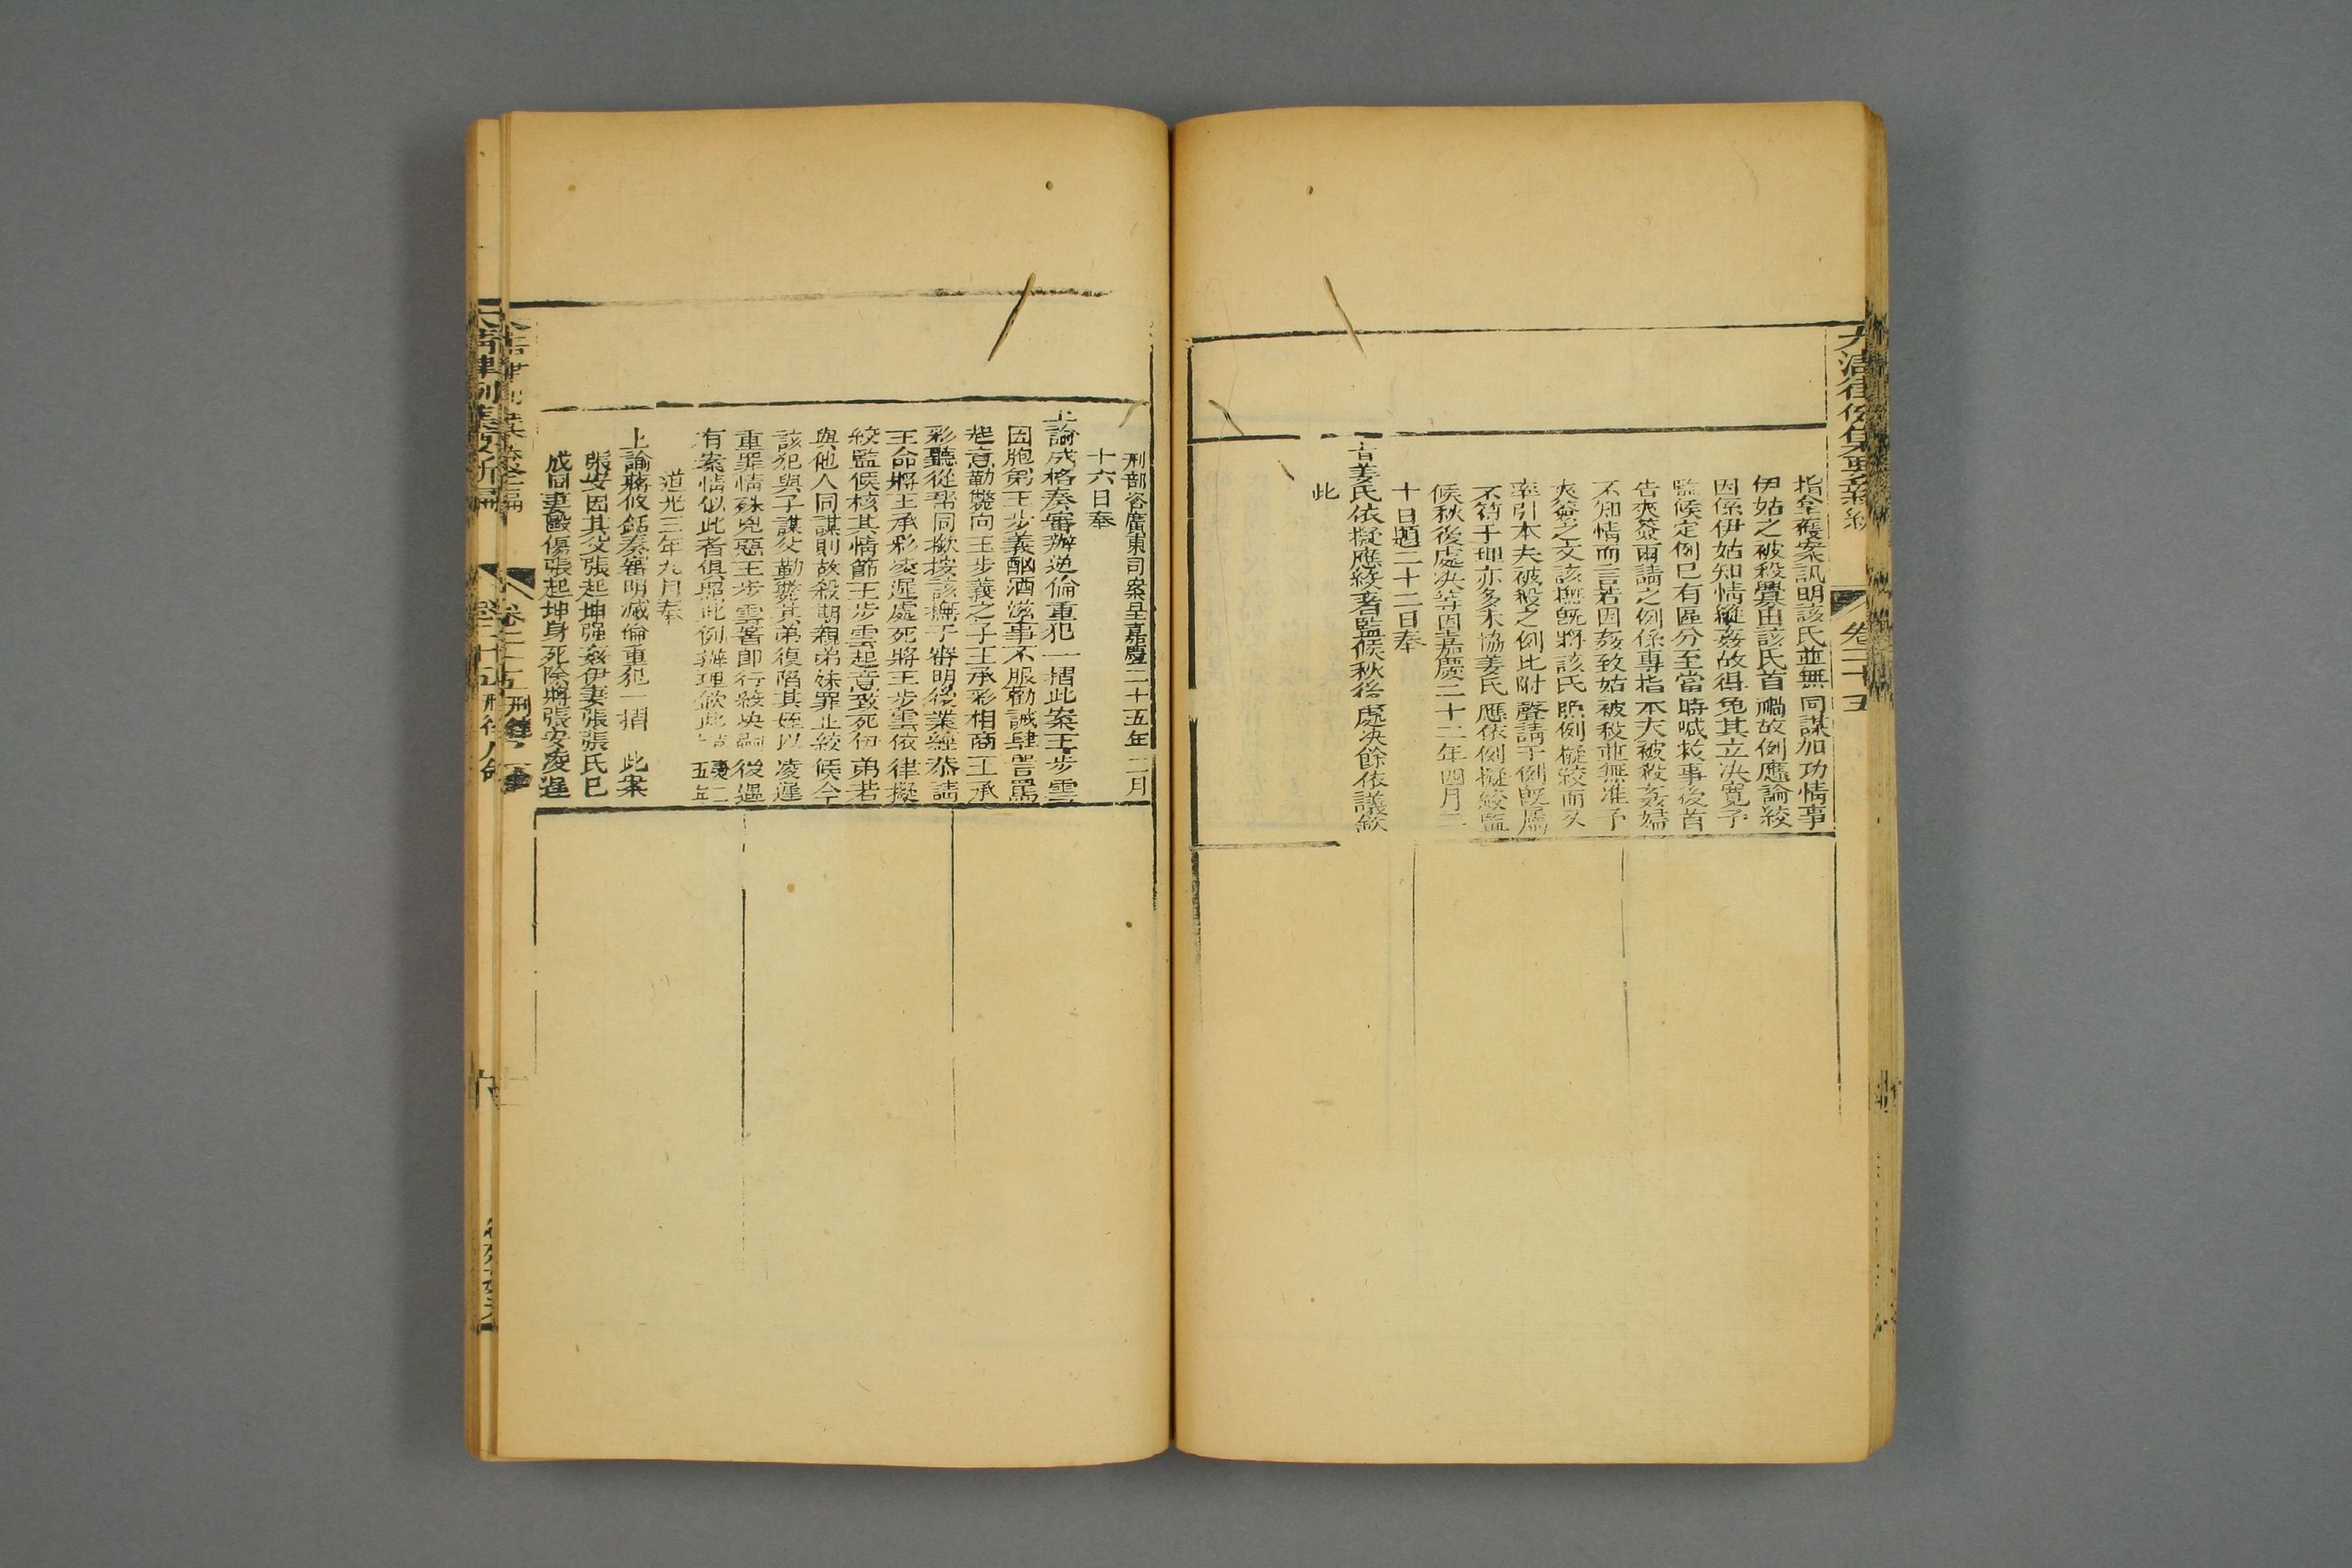 指全覆案訊明該氏並無同謀加功情事
伊姑之被殺釁由該氏首禍故例應論絞
因係伊姑知情縱姦故得免其立決寬予
監候定例已有區分至當時喊救事後首
告夾簽兩請之例係專指本夫被殺姦婦
不知情而言若因姦致姑被殺並無准予
夾簽之文該撫旣將該氏照例擬絞而又
牽引本夫被殺之例比附聲請于例旣屬
不符于理亦多未協姜氏應依例擬絞監
候秋後處決等因嘉慶二十二年四月二
十日題二十二日奉
旨姜氏依擬應絞著監候秋後處決餘依議欽
此
大清律例集要新編
卷二十五
刑部咨廣東司案呈嘉慶二十五年二月
十六日奉
上諭成格奏審辦逆倫重犯一摺此案王步雲
因胞弟王步義酗酒滋事不服勸誡肆詈罵
起意勒斃向王步義之子王承彩相商王承
彩聽從幫同撳按該撫于審明後業經恭請
王命將王承彩凌遲處死將王步雲依律擬
絞監候核其情節王步雲起意致死伊弟若
與他人同謀則故殺期親弟妹罪止絞候今
該犯與子謀父勒斃其弟復陷其姪以凌遲
重罪情殊兇惡王步雲著卽行絞決嗣後遇
有案情似此者俱照此例辦理欽此
道光三年九月奉
上諭蔣攸銛奏審明滅倫重犯一摺 此案
張安因其父張起坤强姦伊妻張張氏已
成同妻毆傷張起坤身死除將張安凌遲
卷二十五
大清律例集要新編
刑律人命